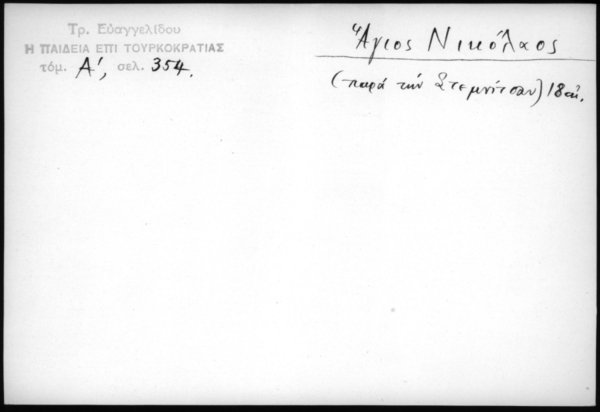 Τρ. Εὐαγγελίδου
Η ΠΑΙΔΕΙΑ ΕΠΙ ΤΟΥΡΚΟΚΡΑΤΙΑΣ
τόμ. Α', σελ. 354.
Ἅγιος Νικόλαος
(παρά τήν Στεμνίτσαν) 18 αἰ.